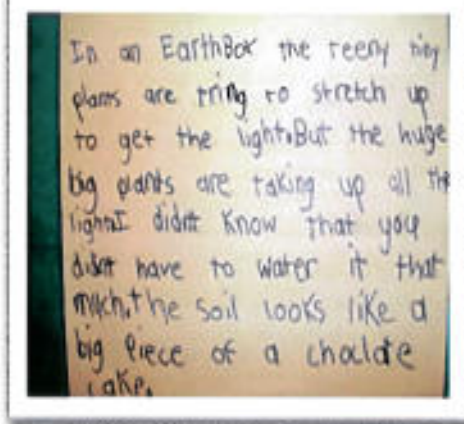 In an EarthBox the teeny tiny
plants are tring to stretch up
to get the light.But the huge
big plants are taking up all the
light.I didnt know that you
didnt have to water it that
much.the soil looks like a
big Piece of a choclate
cake.